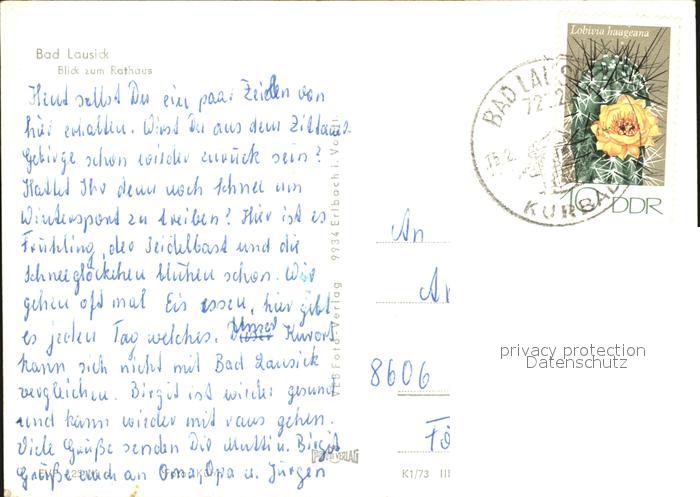 Bad Lausick
Blick zum Rathaus
Heut sollst Du ein paar Zeilen von
hier erhalten. Wirst Du aus dem Zittauer
Gebirge schon wieder zurück sein?
Hattet Ihr denn noch Schnee um
Wintersport zu treiben? Hier ist es
Frühling, der Seidelbast und die
Schneeglöckchen blühen schon. Wir
gehen oft mal Eis essen, hier gibt
es jeden Tag welches. Unser Kurort
kann sich nicht mit Bad Lausick
vergleichen. Birgit ist wieder gesund
und kann wieder mit raus gehen.
Viele Grüße senden Dir Mutti u. Birgit
Grüße auch an Oma, Opa u. Jürgen
VEB Foto-Verlag 9934 Erlbach i. Vogtl.
Lobivia haageana
10 DDR
BAD LAUSICK
KURBAD
An
8606
privacy protection
Datenschutz
K1/73 III